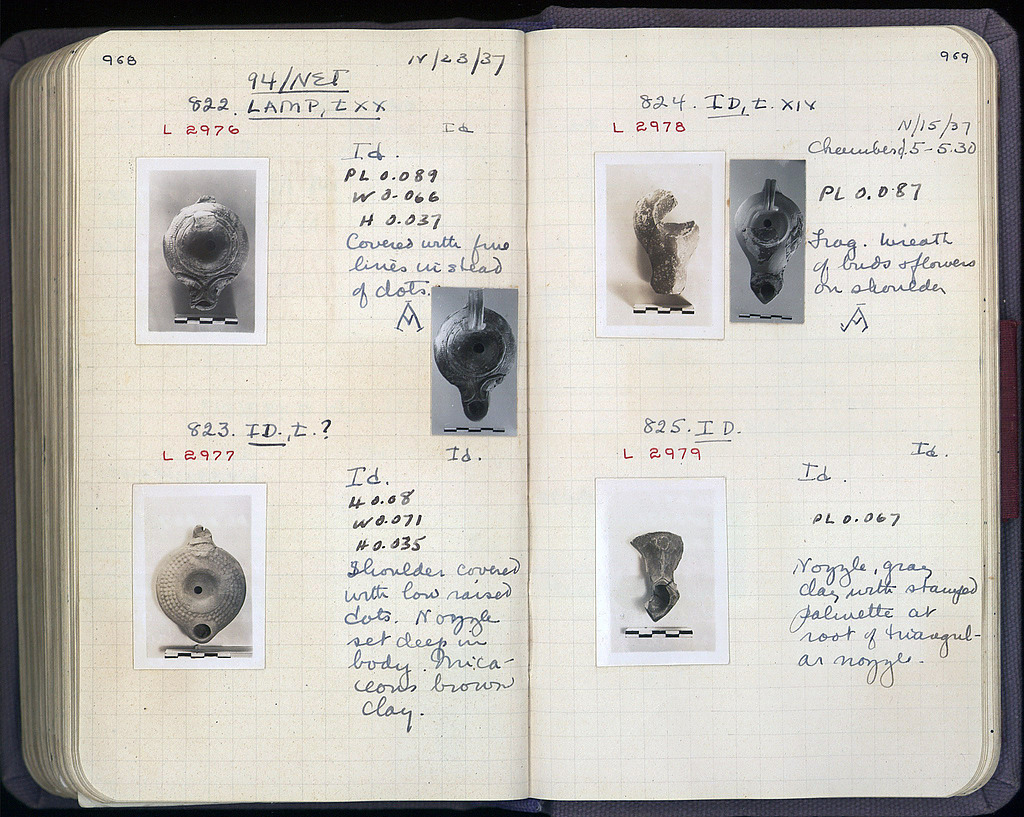 968
IV/23/37
94/ΝΣΤ
822. LAMP, t XX
L 2976
Id
Id.
PL 0.089
W 0.066
H 0.037
Covered with fine
lines instead
of dots.
823. ID., t. ?
L 2977
Id.
Id.
L 0.08
W 0.071
H 0.035
Shoulder covered
with low raised
dots. Nozzle
set deep in
body. Mica-
ceous brown
clay.
969
824. ID, t. XIV
L 2978
IV/15/37
Chamber, 5-5.30
PL 0.087
Frag. wreath
of buds & flowers
on shoulder
825. ID.
L 2979
Id.
Id.
PL 0.067
Nozzle, gray
clay with stamped
palmette at
root of triangul-
ar nozzle.